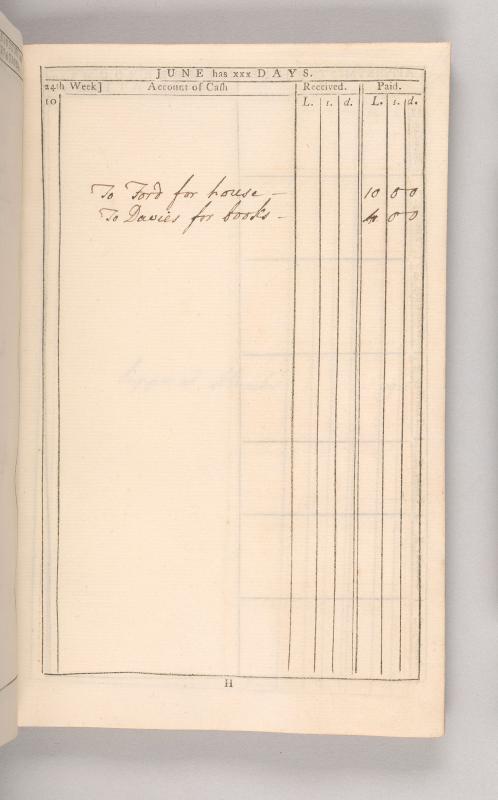 JUNE has xxx DAYS.
24th Week] Account of Cash Received. Paid.
10 L. s. d. L. s. d.
To Ford for house - 10 0 0
To Davies for books - 4 0 0
H